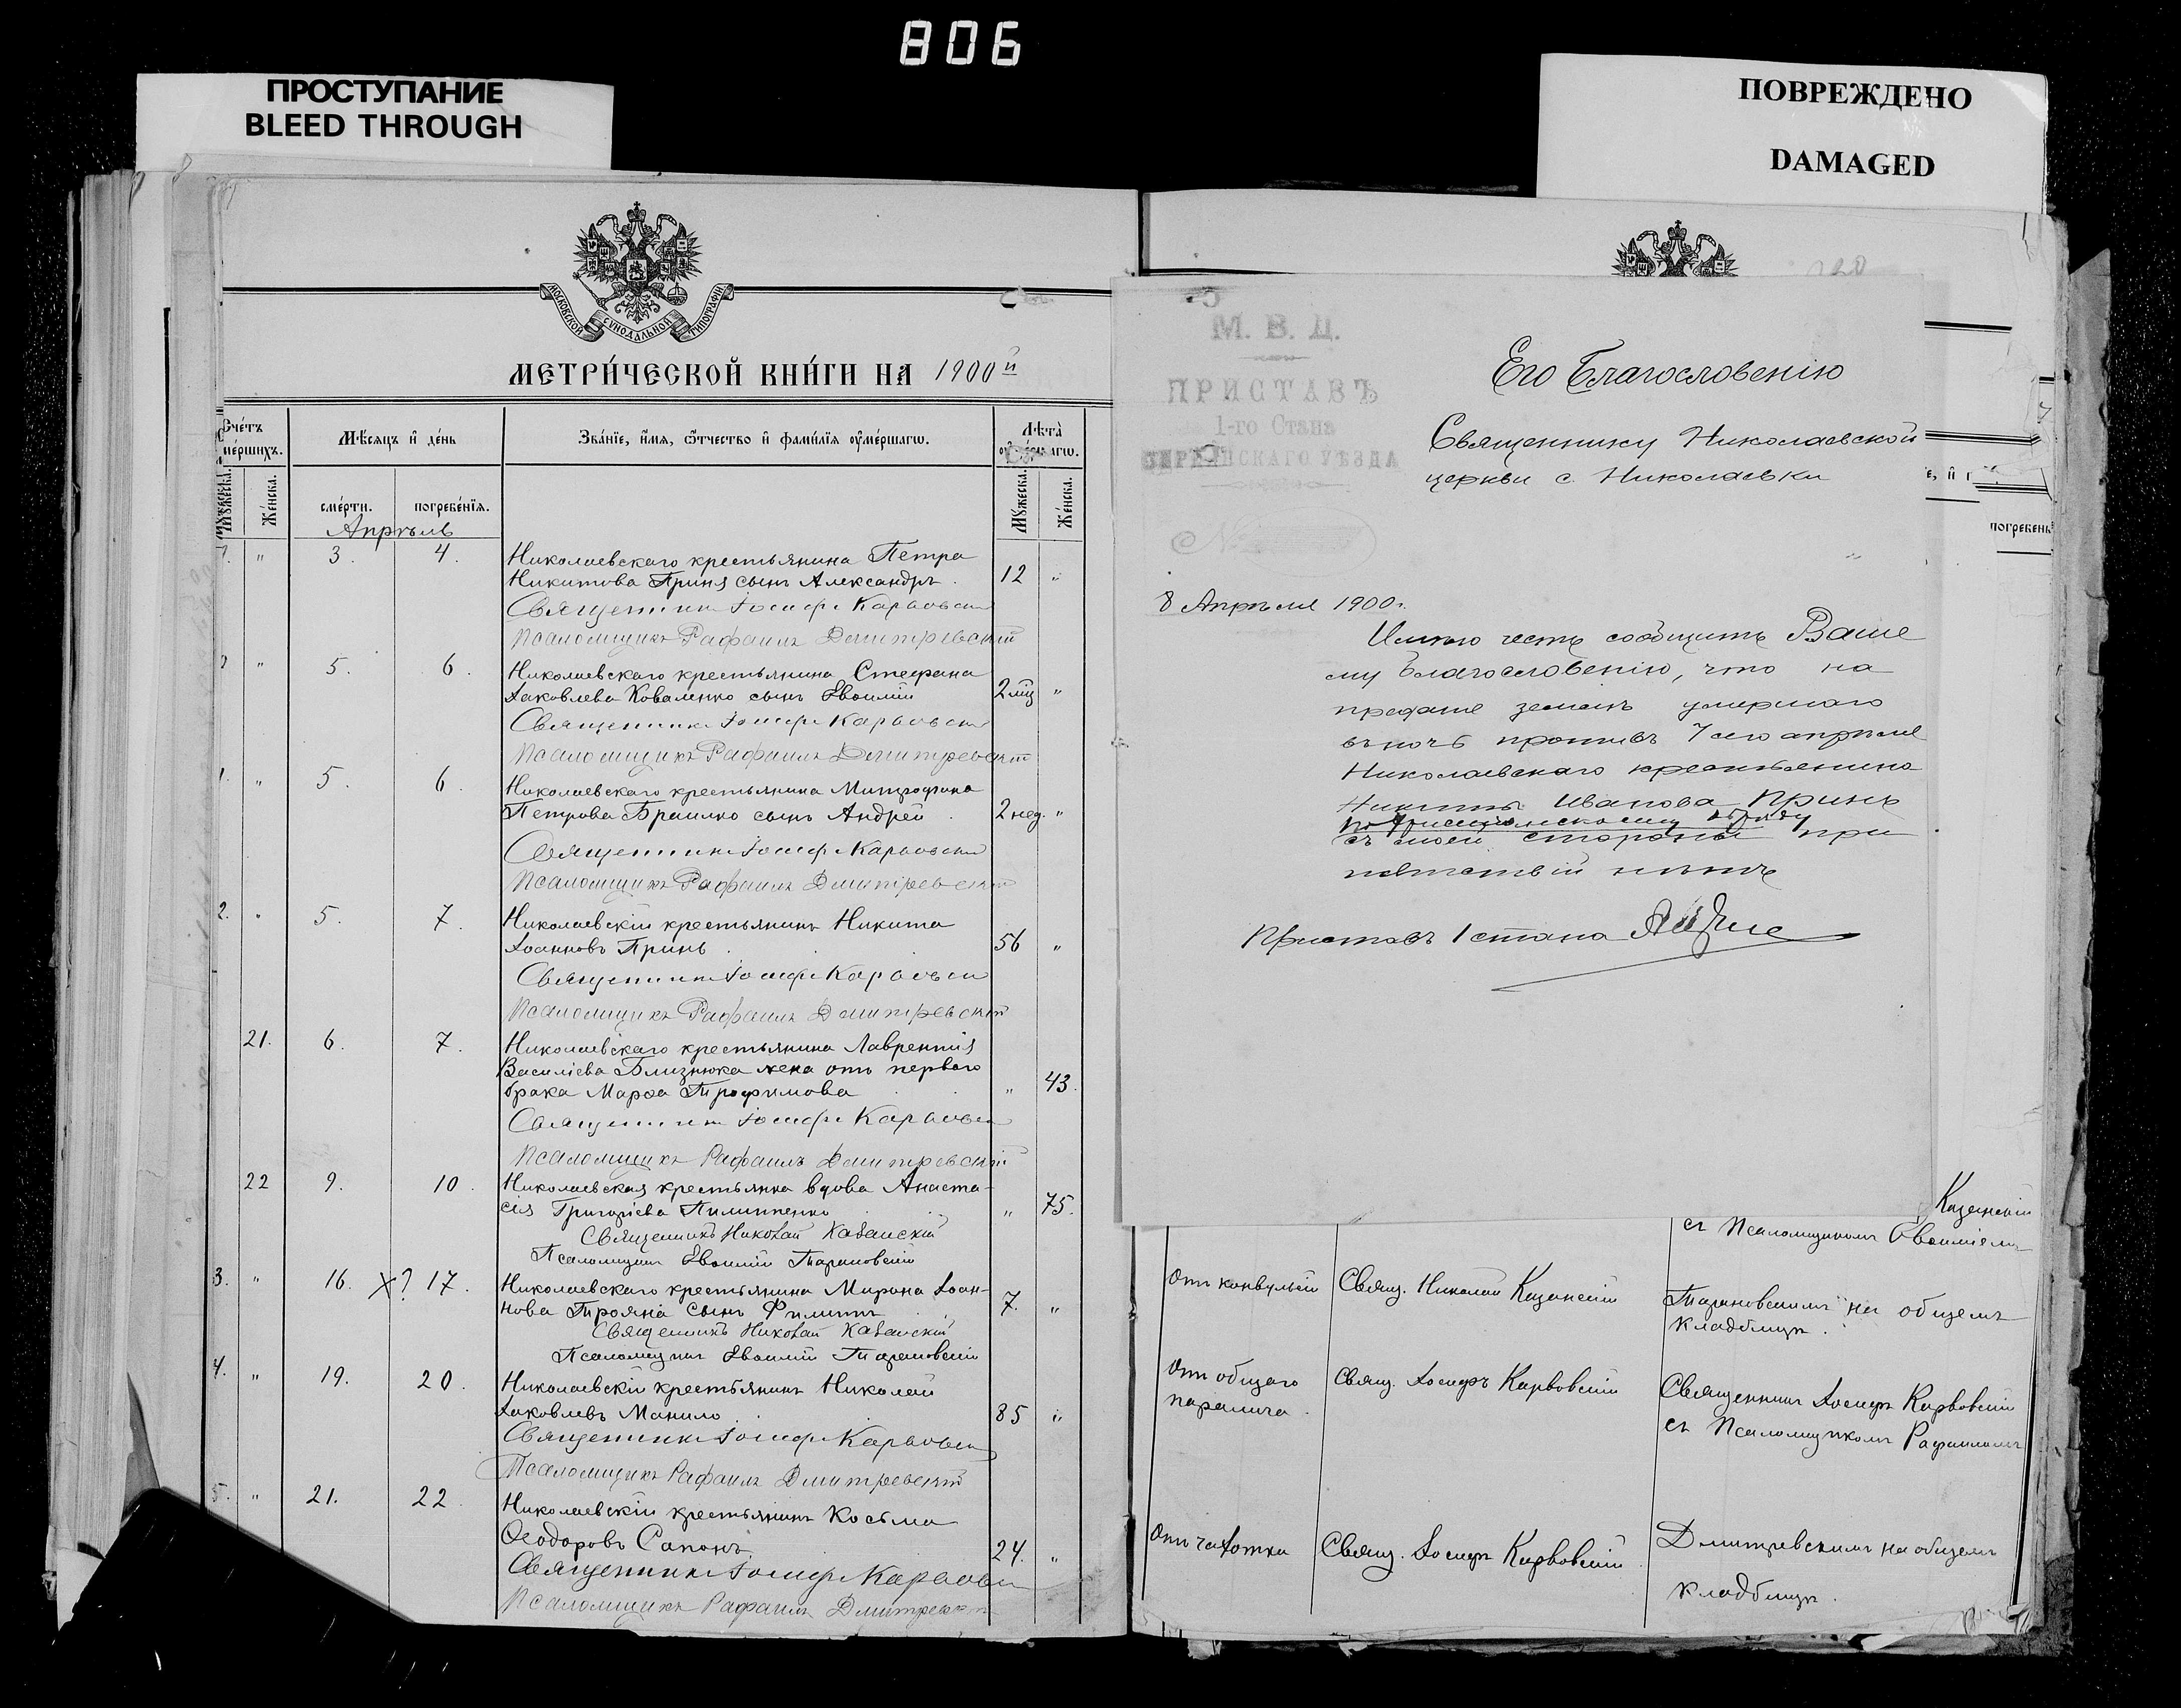 806
ПРОСТУПАНИЕ
BLEED THROUGH
ПОВРЕЖДЕНО
DAMAGED
МОСКОВСКОЙ СѴНОДАЛЬНОЙ ТИПОГРАФІИ
МЕТРИ́ЧЕСКОЙ КНИ́ГИ НА 1900й
Сче́тъ мершихъ.
Мѣ́сяцъ и де́нь
Зва́нїе, и́мя, ѻ́тчество и фами́лїя ᲂу҆ме́ршагѡ.
Лѣта̀
Мꙋ́жеска.
Же́нска.
сме́рти.
погребе́нїя.
Мꙋ́жеска.
Же́нска.
Апрѣль
" 3. 4. Николаевскаго крестьянина Петра
Никитова Приня сынъ Александръ. 12 "
Священникъ Іосифъ Карвовскій
Псаломщикъ Рафаилъ Дмитревскій
" 5. 6. Николаевскаго крестьянина Стефана
Іаковлева Коваленко сынъ Евѳимій 2 мц "
Священникъ Іосифъ Карвовскій
Псаломщикъ Рафаилъ Дмитревскій
1. " 5. 6. Николаевскаго крестьянина Митрофана
Петрова Браилко сынъ Андрей 2 нед. "
Священникъ Іосифъ Карвовскій
Псаломщикъ Рафаилъ Дмитревскій
2. " 5. 7. Николаевскій крестьянинъ Никита
Іоанновъ Принь. 56 "
Священникъ Іосифъ Карвовскій
Псаломщикъ Рафаилъ Дмитревскій
21. 6. 7. Николаевскаго крестьянина Лаврентія
Василіева Близнюка жена отъ перваго
брака Марѳа Трофимова " 43.
Священникъ Іосифъ Карвовскій
Псаломщикъ Рафаилъ Дмитревскій
22 9. 10. Николаевская крестьянка вдова Анаста-
сія Григоріева Пилипенко " 75.
Священникъ Николай Казанскій
Псаломщикъ Евѳимій Тарановскій
3. " 16. х? 17. Николаевскаго крестьянина Мирона Іоан-
нова Трояна сынъ Филиппъ. 7. "
Священникъ Николай Казанскій
Псаломщикъ Евѳимій Тарановскій
4. " 19. 20. Николаевскій крестьянинъ Николай
Іаковлевъ Манило 85 "
Священникъ Іосифъ Карвовскій
Псаломщикъ Рафаилъ Дмитревскій
5. " 21. 22. Николаевскій крестьянинъ Косьма
Ѳеодоровъ Сапонъ 24. "
Священникъ Іосифъ Карвовскій
Псаломщикъ Рафаилъ Дмитревскій
М. В. Д.
ПРИСТАВЪ
1-го Стана
УѢЗДА
№
Его Благословенію
Священнику Николаевской
церкви с. Николаевки
8 Апрѣля 1900 г.
Имѣю честь сообщить Ваше
му Благословенію, что на
преданіе землѣ умершаго
въ ночь противъ 7 сего апрѣля
Николаевскаго крестьянина
Никиты Иванова Принь
по христіанскому обряду
съ моей стороны пре
пятствій нѣтъ
Приставъ 1 стана
погребенъ
Казанскій
съ Псаломщикомъ Евѳиміемъ
Отъ конвульсій Свящ. Николай Казанскій Тарановскимъ на общемъ
кладбищѣ.
Отъ общаго паралича. Свящ. Іосифъ Карвовскій Священникъ Іосифъ Карвовскій
съ Псаломщикомъ Рафаиломъ
Отъ чахотки Свящ. Іосифъ Карвовскій Дмитревскимъ на общемъ
кладбищѣ.